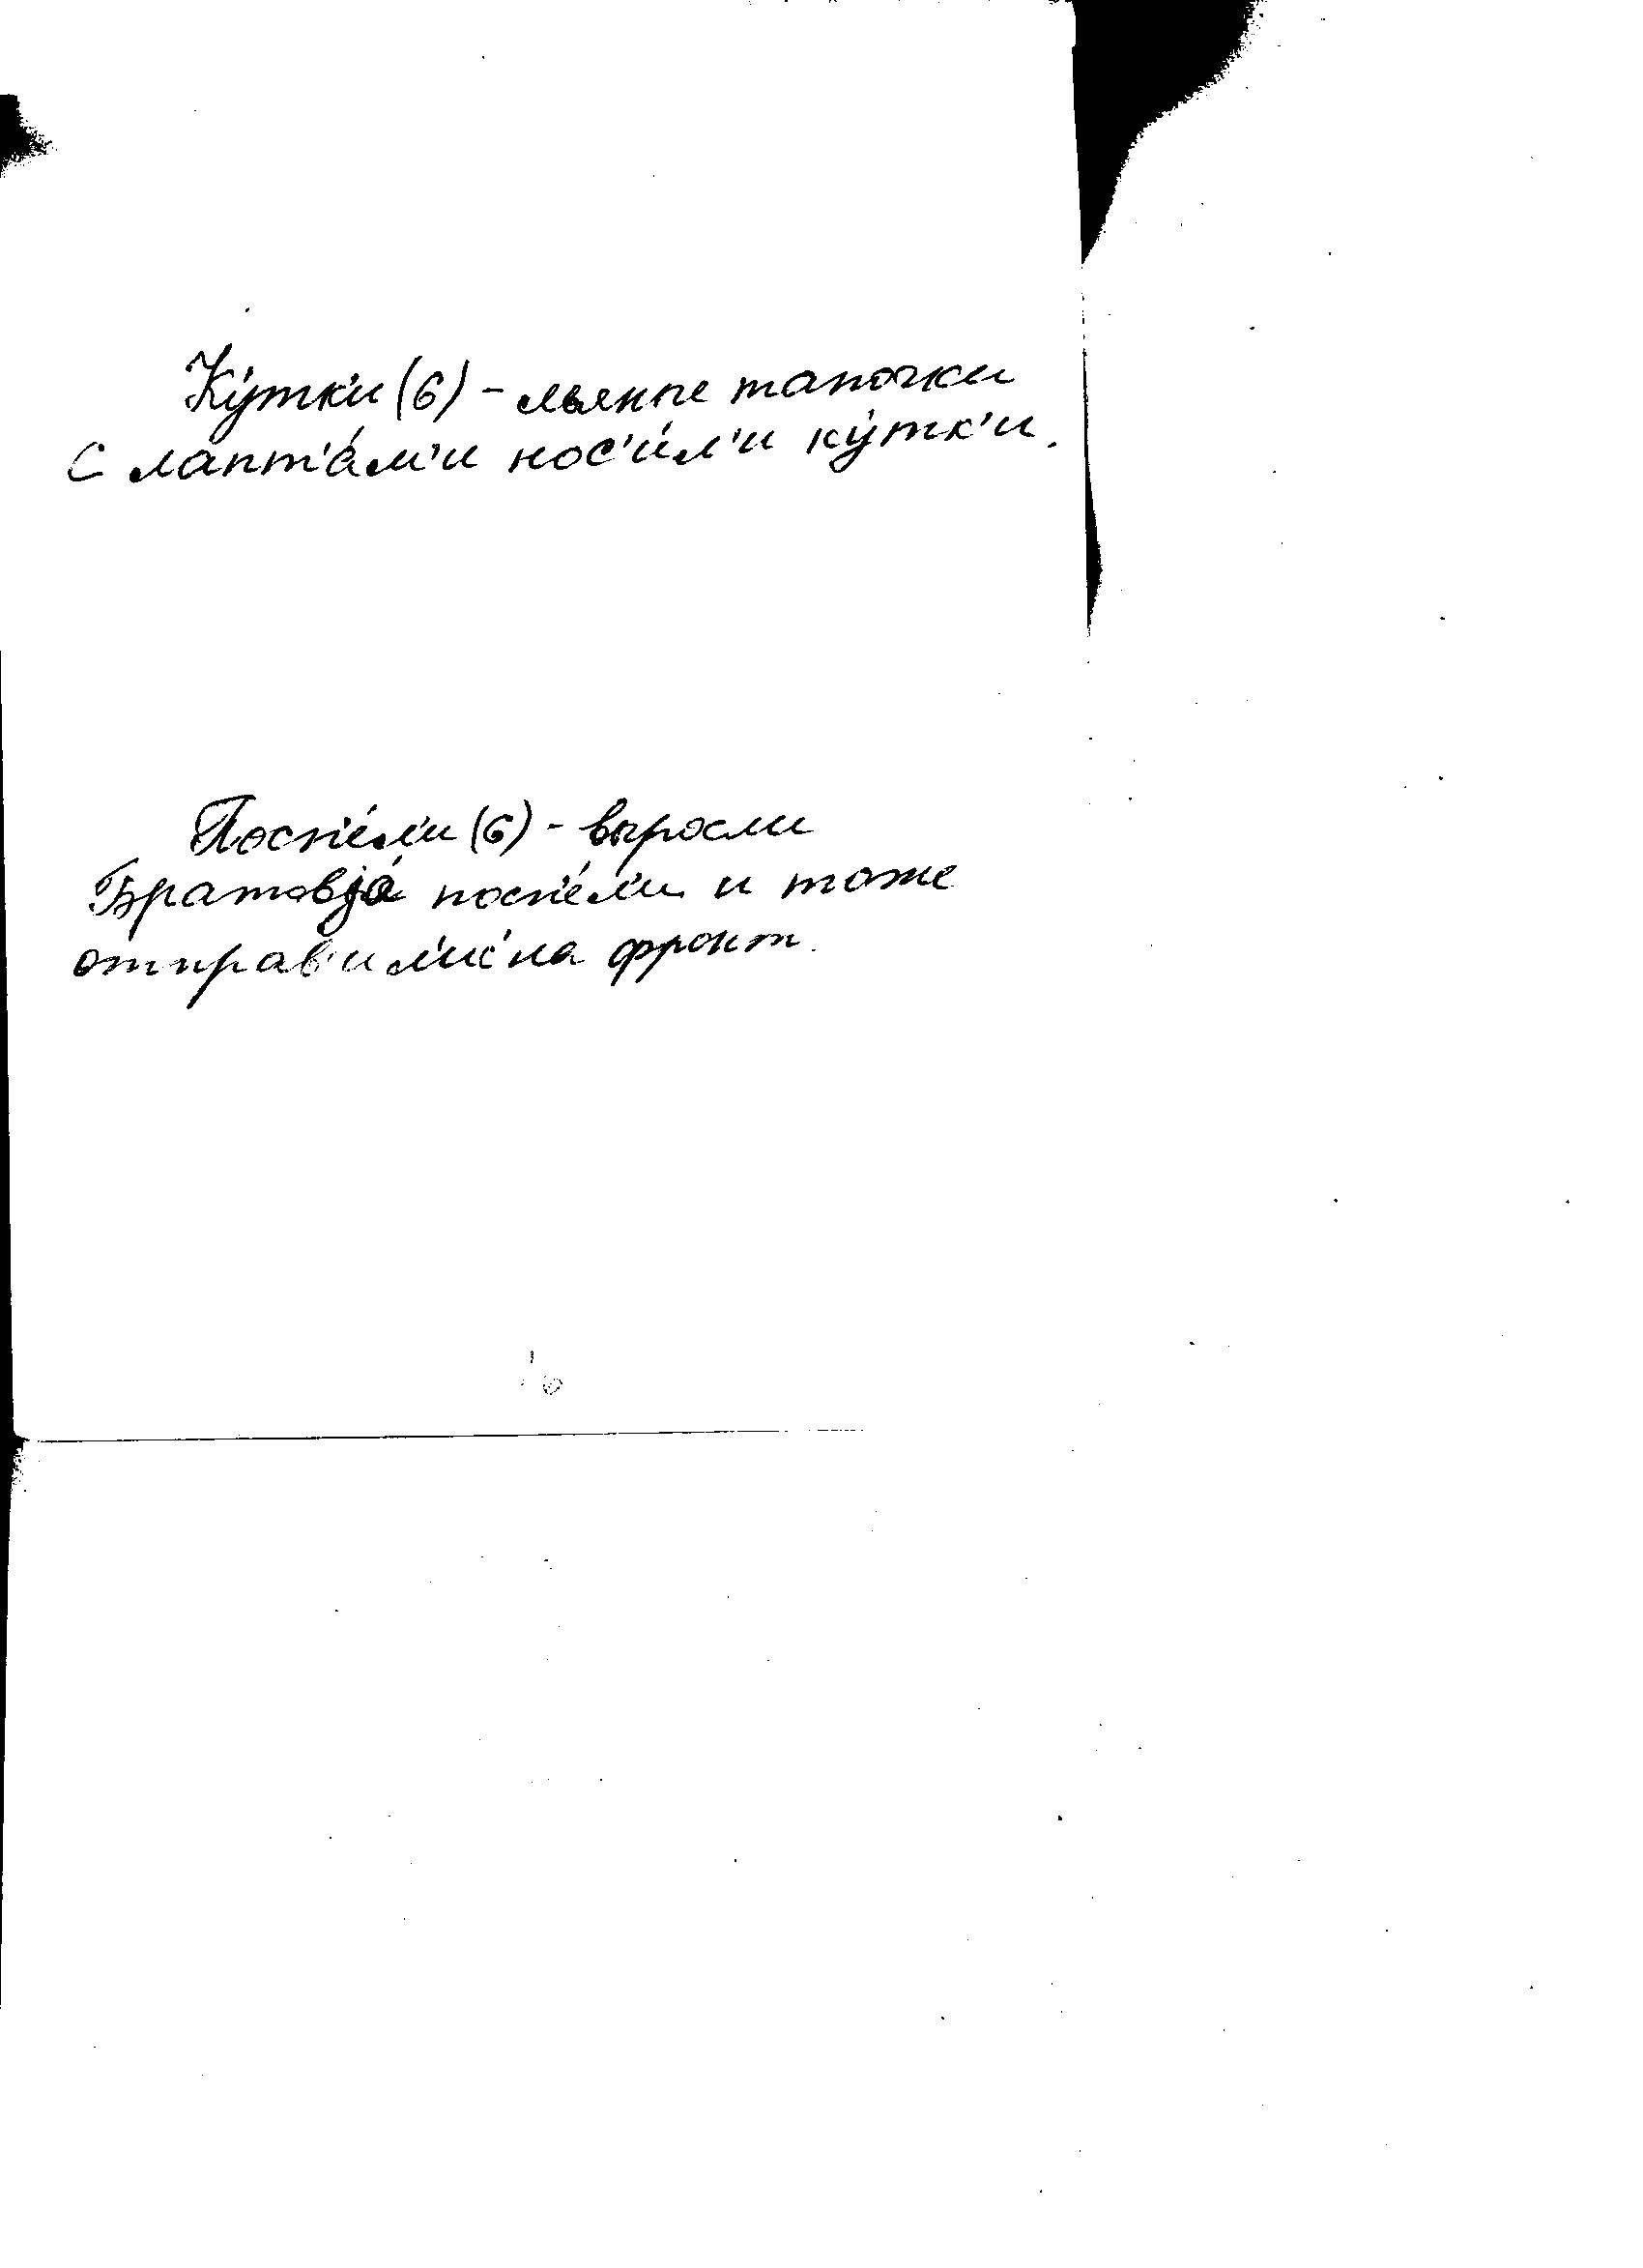 Ку́тк'и (6) - льяные тапочки
С лапт'а́м'и нос'и́л'и ку́тк'и.
Посп'е́л'и (6) - выросли
Братовjа́ посп'е́л'и и тоже
отправ'ил'ис' на фронт.